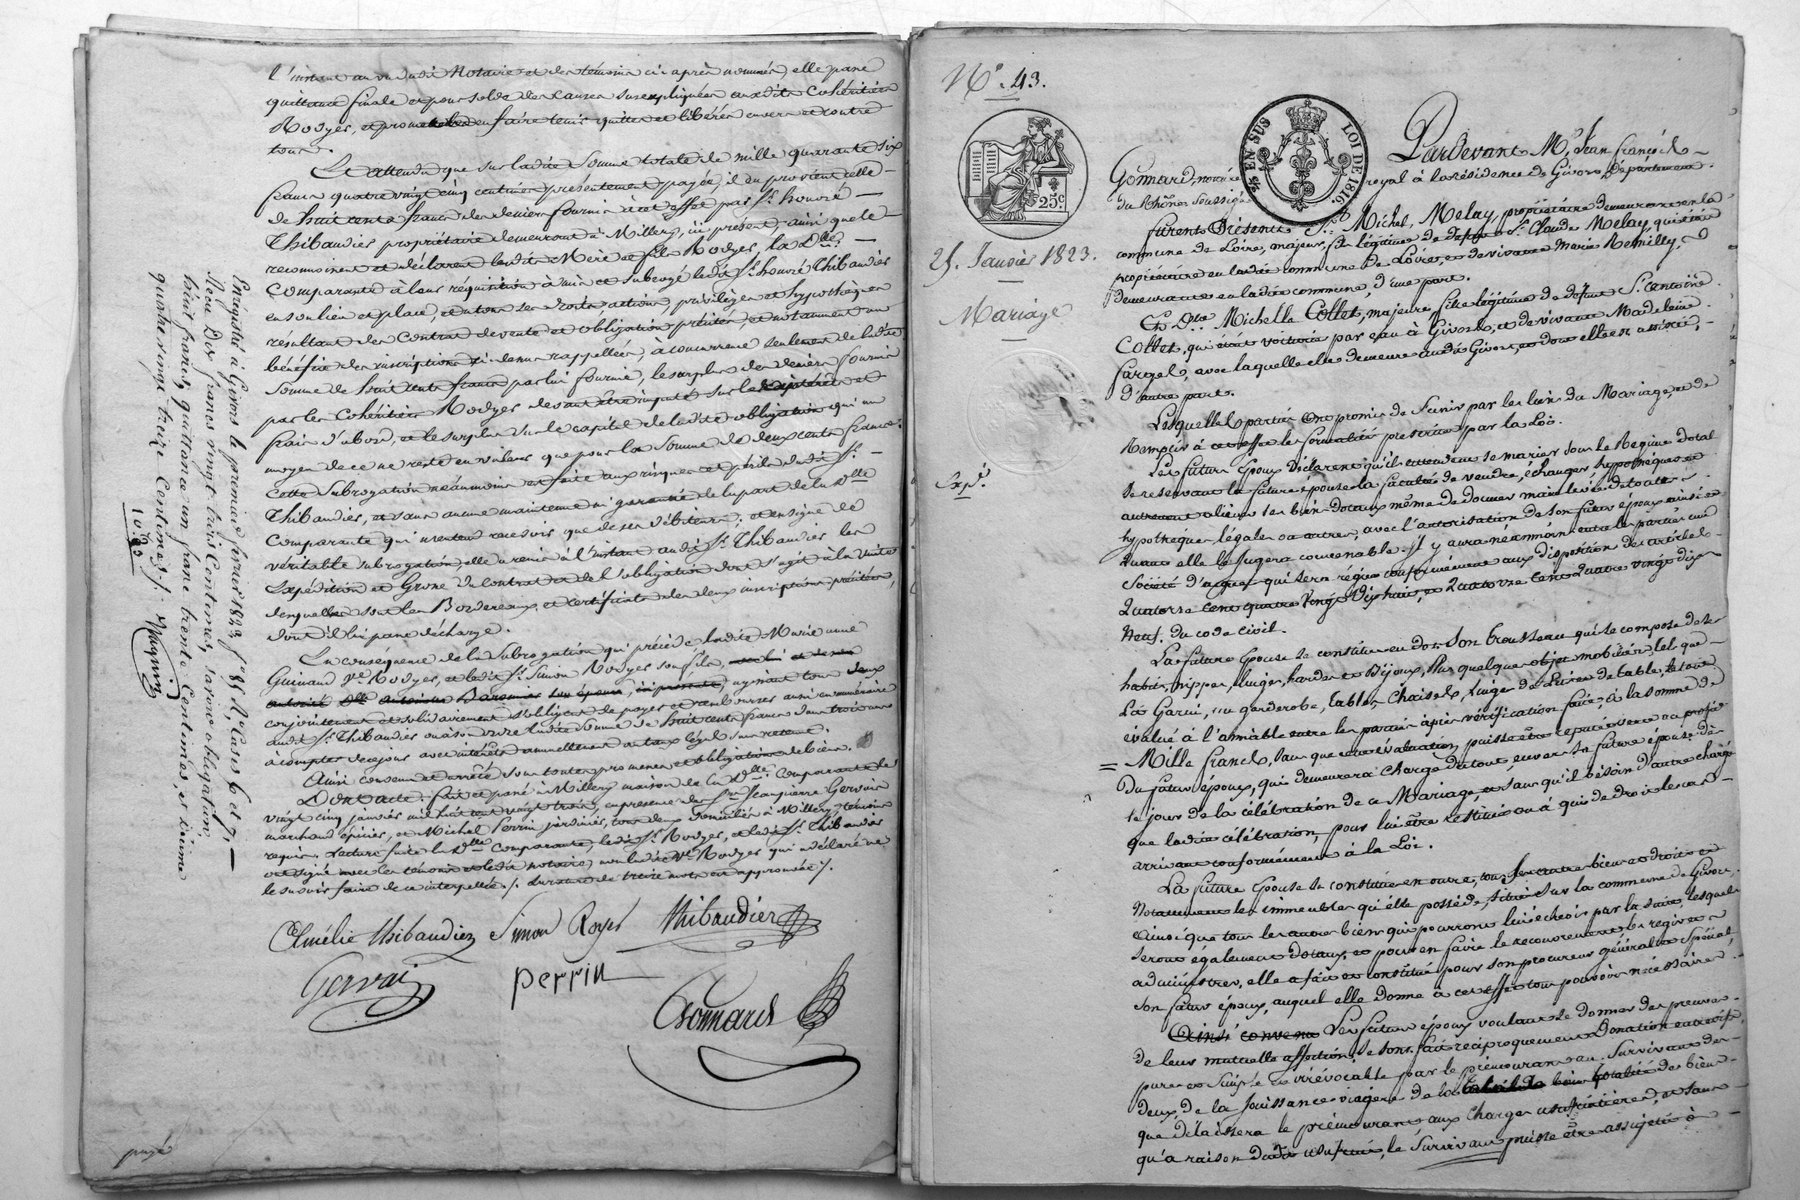 l'instant au vu dudit Notaire et des témoins ci après nommés, elle passe
quittance finale et pour solde des causes susexpliquées auxdits Cohéritiers
Rodyer, et promet en faire tenir quittes et libérés envers et contre
tous.
Et attendu que sur ladite Somme totale de mille quarante six
francs quatre vingt cinq centimes présentement payée, il en provient celle
de huit cents francs des deniers fournis à cet effet par Sr. honoré
Thibaudier propriétaire demeurant à Millery, ici présent, ainsi que le
reconnoissent et déclarent lesdits Mère et fils Rodyer, la Dlle.
Comparante à leur réquisition a mis et subrogé ledit Sr. honoré Thibaudier
en son lieu et place, et en tous ses droits, actions, privilèges et hypothèques
résultant des Contrat de vente et obligation précités, et notamment au
bénéfice des inscriptions ci dessus rappellées, à concurrence seulement de ladite
Somme de huit cents francs par lui fournie, le surplus des deniers fournis
par les Cohéritiers Rodyer devant être imputé sur les intérêts et
frais d'abord, et le surplus sur le capital de ladite obligation qui au
moyen de ce ne reste en valeur que pour la Somme de deux cents francs.
Cette Subrogation néanmoins est faite aux risques et périls dudit Sr.
Thibaudier, et sans aucune maintenue ni garantie de la part de la Dlle
Comparante qui n'entend recevoir que de ses débiteurs; et en signe de
véritable subrogation, elle a remis à l'instant audit Sr. Thibaudier les
Expédition et Grosse du contrat et de l'obligation dont s'agit à la suite
desquelles sont les Bordereaux, et certificats des deux inscriptions précitées,
dont il lui passe décharge.
En conséquence de la Subrogation qui précède, ladite Marie anne
Guinand Ve. Rodyer, et ledit Sr. Simon Rodyer son fils,
agissant tous deux
conjointement et solidairement s'obligent de payer et rembourser aussi en numéraire
audit Sr. Thibaudier ou à son ordre ladite Somme de huit cents francs dans trois ans
à compter de ce jour avec intérêts annuellement au taux légal sans retenue.
Ainsi convenu et arrêté sous toutes promesses et obligations de biens.
Dont acte: fait et passé à Millery maison de la Dlle. Comparante le
vingt cinq janvier mil huit cent vingt trois, en présence des Srs Jean pierre Gervais
marchand épicier, et Michel Perrin jardinier, tous deux domiciliés à Millery, témoins
requis. Lecture faite la Dlle Comparante, ledit Sr. Rodyer, et ledit Sr. Thibaudier
ont signé avec les témoins et ledit notaire, non ladite Ve. Rodyer qui a déclaré ne
le savoir faire de ce interpellée ./. La rature de treize mots est approuvée ./.
Amélie thibaudier Simon Royer Thibaudier
Gervais perrin Gonnard
payé
Enregistré à Givors le premier février 1823, fo. 85 Ro, Cases 6 et 7,
Reçu Dix francs vingt trois Centimes, savoir: obligation
huit francs, quittance un franc trente Centimes, et dixime
quatre vingt treize Centimes ./.
10.23
No. 43.
25. Janvier 1823.
Mariage
Exp.
25c.
EN SUS
LOI DE 1816.
Pardevant Me. Jean François
Gonnard, notaire royal à la résidence de Givors, Département
du Rhône, Soussigné
furent Présents Sr. Michel Melay, propriétaire demeurant en la
commune de Loire, majeur, fils légitime de Sr. Claude Melay, qui étoit
propriétaire en ladite commune de Loire, et de vivante Marie Remilly,
demeurante en ladite commune, d'une part.
Et Dlle Michelle Collet, majeure, fille légitime de défunt Sr. antoine
Collet, qui étoit voiturier par eau à Givors, et de vivante Madeleine
Fargel, avec laquelle elle demeure audit Givors, et dont elle est assistée,
d'autre part.
Lesquelles parties Ont promis de S'unir par les liens du Mariage, et de
Remplir à cet effet les formalités prescrites par la Loi.
Les futurs Epoux Déclarent qu'ils entendent se marier sous le Régime dotal
Se réservant la future épouse la faculté de vendre, échanger, hypothéquer et
autrement aliéner ses biens dotaux même de donner main levée de toutes
hypothèques légales ou autres, avec l'autorisation de son futur époux ainsi et
quand elle le jugera convenable. Il y aura néanmoins entre les parties une
Société d'acquets qui sera régie conformément aux disposition des articles
Quatorze Cent quatre Vingt Dix huit, et Quatorze Cent Quatre Vingt Dix
Neuf. du code Civil.
La future Epouse se constitue en dot Son trousseau qui se compose de ses
habits, nippes, linges, hardes et Bijoux, Plus quelques objets mobiliers tels que
Lit Garni, une garderobe, tables, Chaises, linges de Lit et de table, le tout
évalué à l'amiable entre les parties après vérification faite, à la somme de
= Mille francs, sans que cette évaluation puisse être réputée vente au profit
Du futur époux, qui demeurera Chargé du tout, envers sa future épouse dès
le jour de la célébration de ce Mariage, et sans qu'il soit besoin d'autre charge
que ladite célébration, pour lui être restitué ou à qui de droit le cas
arrivant conformément à la Loi.
La future Epouse Se constitue en outre, tous ses autres biens et droits et
Notamment les immeubles qu'elle possède, situés sur la commune de Givors,
ainsi que tous les autres biens qui pourront lui échoir par la suite, lesquels
seront également dotaux, et pour en faire le recouvrement les régir et
administrer, elle a fait et constitué pour son procureur général et Spécial
Son futur époux, auquel elle donne à cet effet tous pouvoirs nécessaires.
Ainsi convenu Les futurs époux voulant se donner des preuves
de leur mutuelle affection, se sont fait réciproquement Donation entrevifs,
pure et Simple et irrévocable par le prémourant au Survivant des
deux, de la Jouissance viagère de la totalité des biens
que délaissera le prémourant, aux charges usufruitières, et sans
qu'à raison dudit usufruit, le Survivant puisse être assujetti à